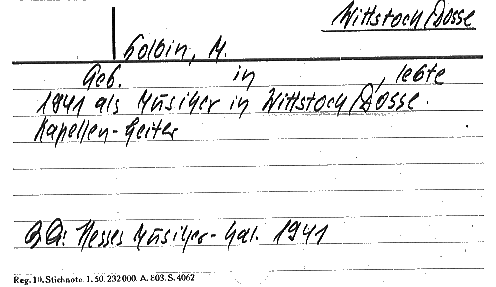 Wittstock/Dosse
Kolbin, M.
Geb. in , lebte
1941 als Musiker in Wittstock/Dosse.
Kapellen-Leiter
BQ: Hesses Musiker-Kal. 1941
Reg. 10. Stichnote. 1. 50. 232000. A. 803. S. 4062